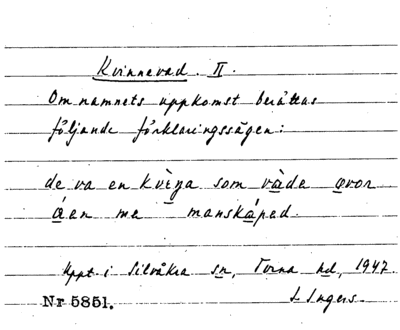 Kvinnevad. II.
Om namnets uppkomst berättas
följande förklaringssägen:
de va en kvɩ̀ŋa som và̱de o̱vor
a̱̋en me manská̱ped.
Uppt. i Silvåkra sn, Torna hd, 1947
Nr 5851. I. Ingers.